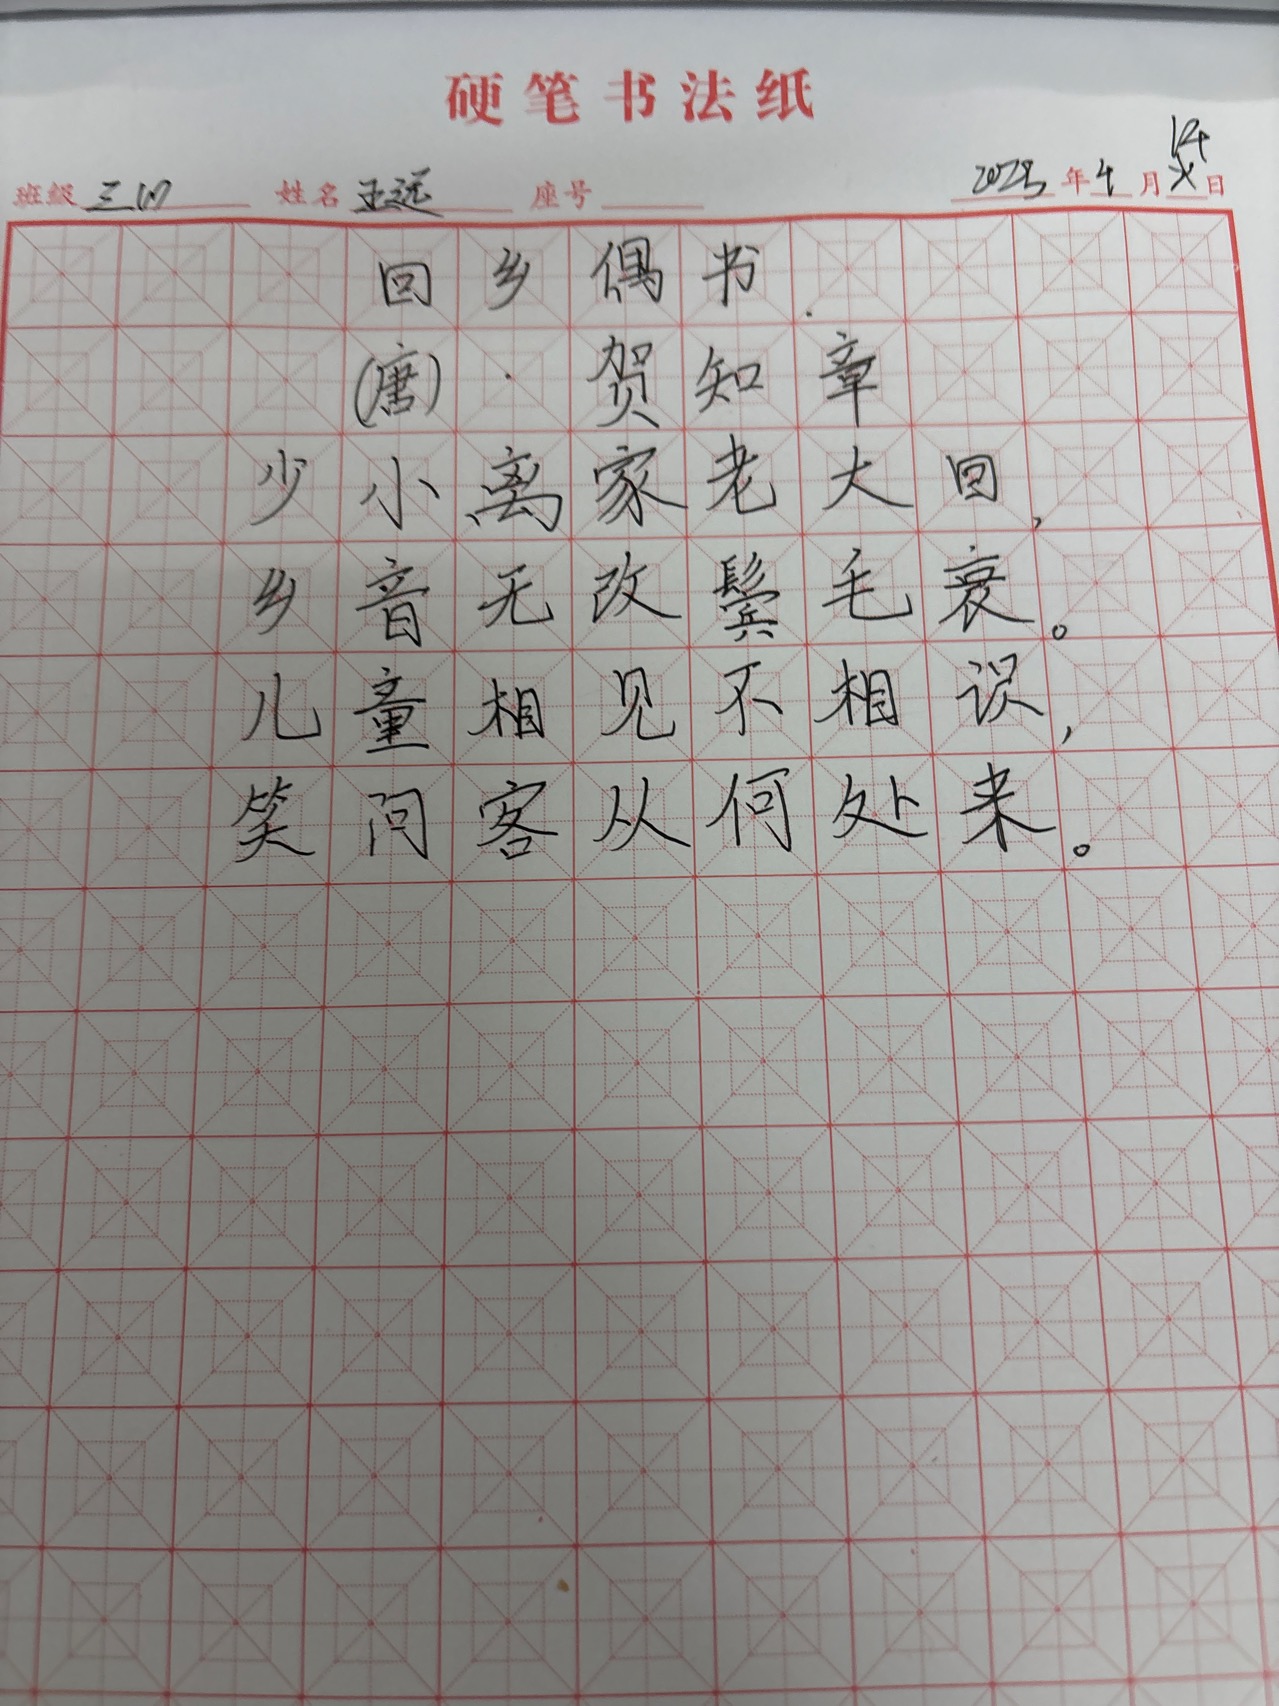 硬笔书法纸
班级 三(1) 姓名 王远 座号 年 4 月 14 日
回乡偶书
(唐)·贺知章
少小离家老大回,
乡音无改鬓毛衰。
儿童相见不相识,
笑问客从何处来。